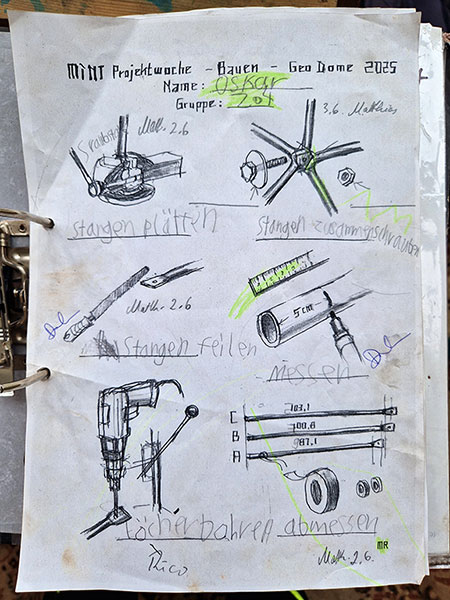 MINT Projektwoche - Bauen - Geo Dome 2025
Name: Oskar
Gruppe: 201
Math. 2.6
3.6. Matthias
Stangen plätten
Stangen zusammenschrauben
Math. 2.6
5 cm
Stangen feilen
messen
C 103,1
B 100,6
A 87,1
Löcher bahren
abmessen
MR
Rico
Math. 2.6.